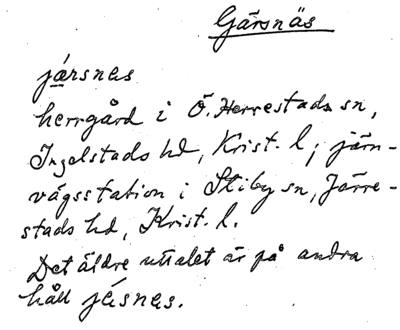 Gärsnäs
järsnes
herrgård i Ö. Herrestads sn,
Ingelstads hd, Krist. l; järn-
vägsstation i Stiby sn, Järre-
stads hd, Krist. l.
Det äldre uttalet är på andra
håll jésnes.